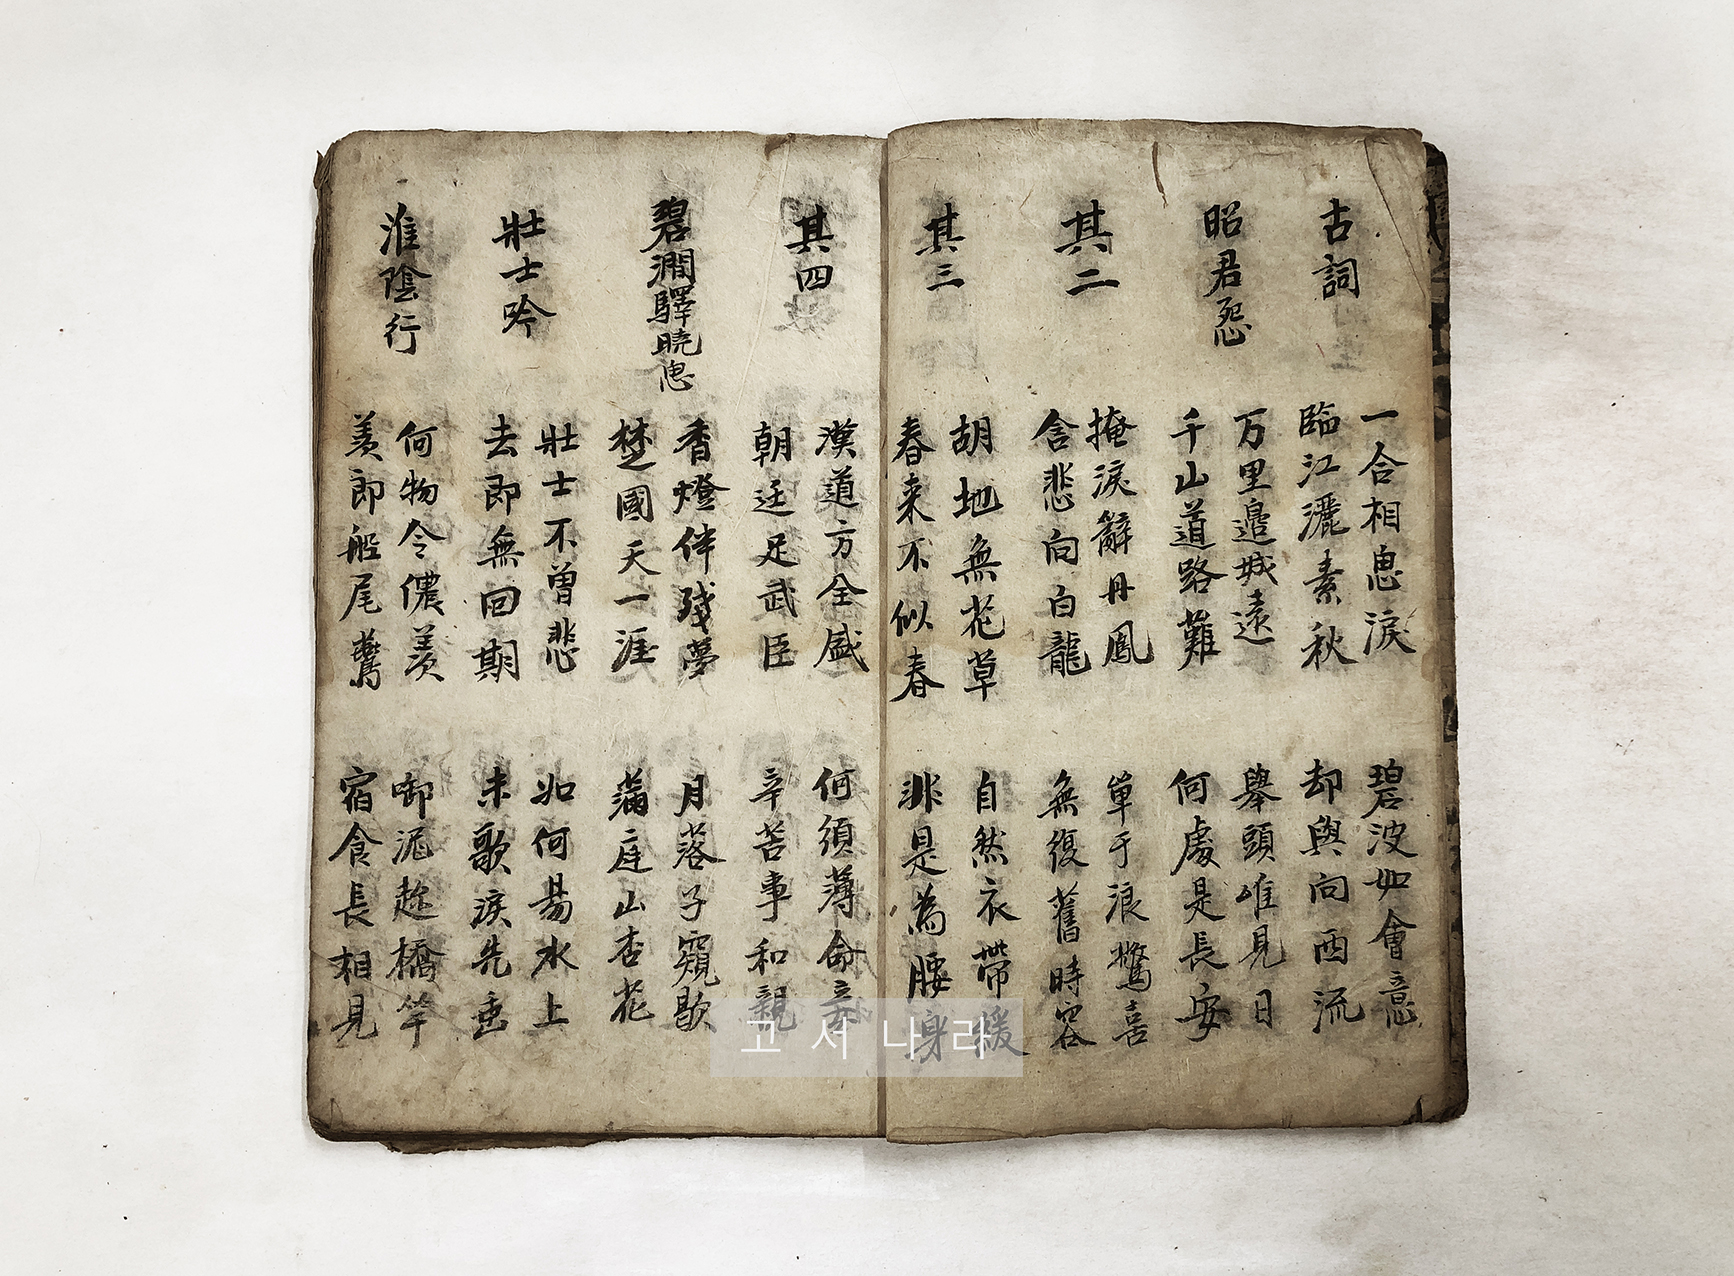 古詞
一合相思淚 碧波如會意
臨江灑素秋 却與向西流
昭君怨
万里邉城遠 擧頭唯見日
千山道路難 何處是長安
其二
掩淚辭丹鳳 單于浪驚喜
含悲向白龍 無復舊時容
其三
胡地無花草 自然衣帶緩
春来不似春 非是為腰身
其四
漢道方全盛 何須薄命妾
朝廷足武臣 辛苦事和親
碧澗驛曉思
香燈伴殘夢 月落子窺歇
楚國天一涯 滿庭山杏花
壯士吟
壯士不曾悲 如何易水上
去即無回期 未歌淚先垂
淮陰行
何物令儂羨 啣泥趂橋竿
羨郎船尾鷰 宿食長相見
고서나라